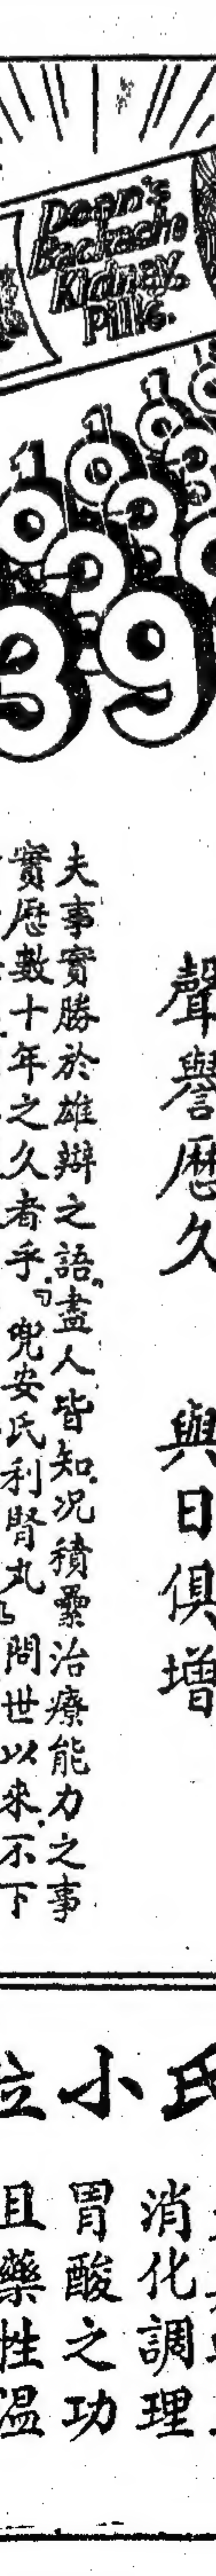 Doan's
Backache
Kidney
Pills.
1939
聲譽歷久 與日俱增
夫事實勝於雄辯之語。盡人皆知。況積纍治療能力之事
實歷數十年之久者乎。『兜安氏利腎丸』問世以來。不下
氏
小
消化調理
胃酸之功
且藥性溫